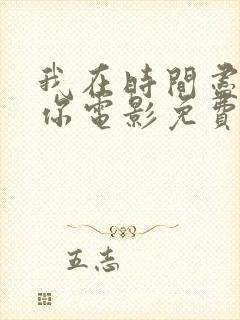 我在時間盡
你電影免費
五志